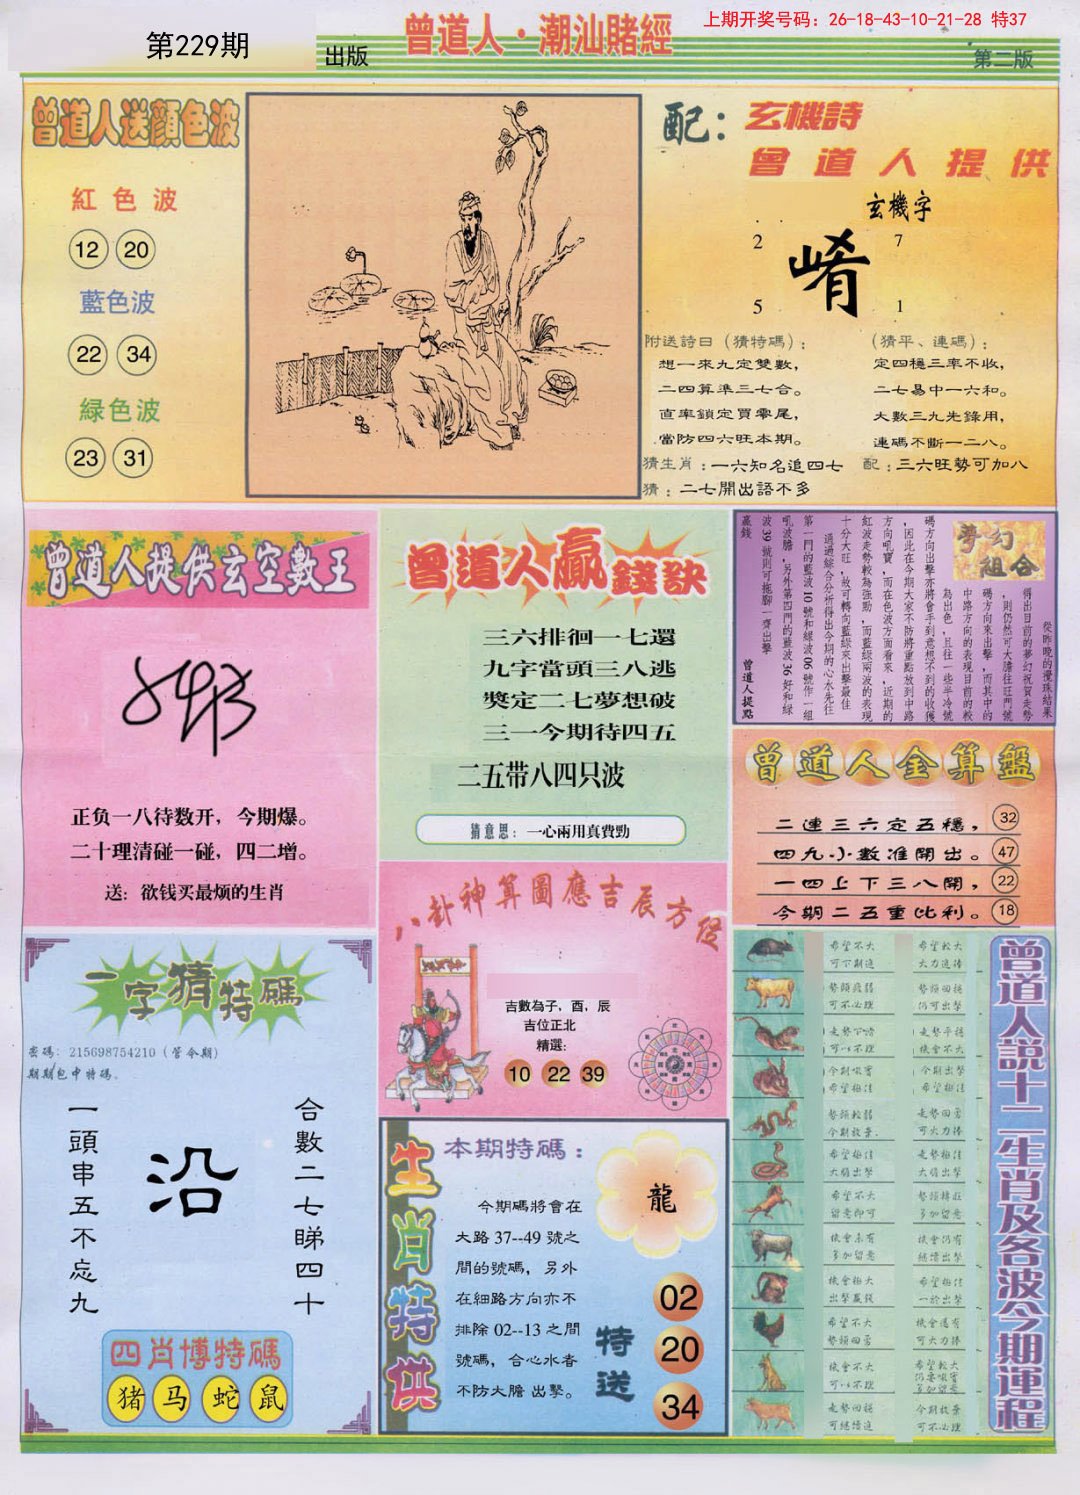 第229期
出版
曾道人·潮汕賭經
上期开奖号码：26-18-43-10-21-28 特37
第二版
曾道人送顏色波
紅色波
12 20
藍色波
22 34
緑色波
23 31
配：玄機詩
曾道人提供
玄機字
2 7
崤
5 1
附送詩曰（猜特碼）；
想一來九定雙數，
二四算準三七合。
直率鎖定買零尾，
當防四六旺本期。
（猜平、連碼）；
定四穩三率不收，
二七易中一六和。
大數三九先錄用，
連碼不斷一二八。
猜生肖：一六知名追四七
配：三六旺勢可加八
猜：二七開出語不多
曾道人提供玄空數王
正负一八待数开，今期爆。
二十理清碰一碰，四二增。
送：欲钱买最烦的生肖
曾道人贏錢訣
三六排徊一七還
九字當頭三八逃
獎定二七夢想破
三一今期待四五
二五带八四只波
猜意思：一心兩用真費勁
夢幻組合
從昨晚的攪珠結果
得出目前的夢幻祝賀走勢
，則仍然可大膽往旺門號
碼方向來出擊，而其中的
中路方向的表現目前的較
為出色，且往一些半冷號
碼方向出擊亦將會手到意想不到的收獲
，因此在今期大家不防將重點放到中路
方向吼寶，而在色波方面看來，近期的
紅波走勢較為強勁，而藍綠兩波的表現
十分大旺，故可轉向藍綠來出擊最佳
通過綜合分析得出今期的心水先往
第一門的藍波10號和綠波06號作一組
吼波膽，另外第四門的藍波36好和綠
波39號則可拖腳一齊出擊
贏錢
曾道人提點
曾道人金算盤
二連三六定五穩， 32
四九小數准開出。 47
一四上下三八開， 22
今期二五重比利。 18
八卦神算圖應吉辰方位
吉數為子，酉，辰
吉位正北
精選：
10 22 39
一字猜特碼
密碼：215698754210（管令期）
期期包中特碼。
一頭串五不忘九
沿
合數二七睇四十
四肖博特碼
猪 马 蛇 鼠
生肖特供
本期特碼：
今期碼將會在
大路37--49號之
間的號碼，另外
在細路方向亦不
排除02--13之間
號碼，合心水者
不防大膽出擊。
龍
特送
02
20
34
曾道人說十二生肖及各波今期運程
希望不大
可下期進
希望較大
大力追捧
勢頭疲弱
可不必理
勢頭回穩
仍可出擊
走勢平穩
機會不大
希望極佳
今期出擊
希望極佳
勢頭較弱
今期放棄
走勢回勇
可大力捧
走勢極佳
大膽出擊
希望不大
留意即可
多加留意
機會未有
多加留意
機會仍有
繼續出擊
機會極大
出擊贏錢
希望極佳
一於出擊
希望不大
勢頭回勇
機會還有
可大力捧
機會不大
可以不理
希望較大
多加留意
走勢回穩
可繼續追
今期放棄
可不必理